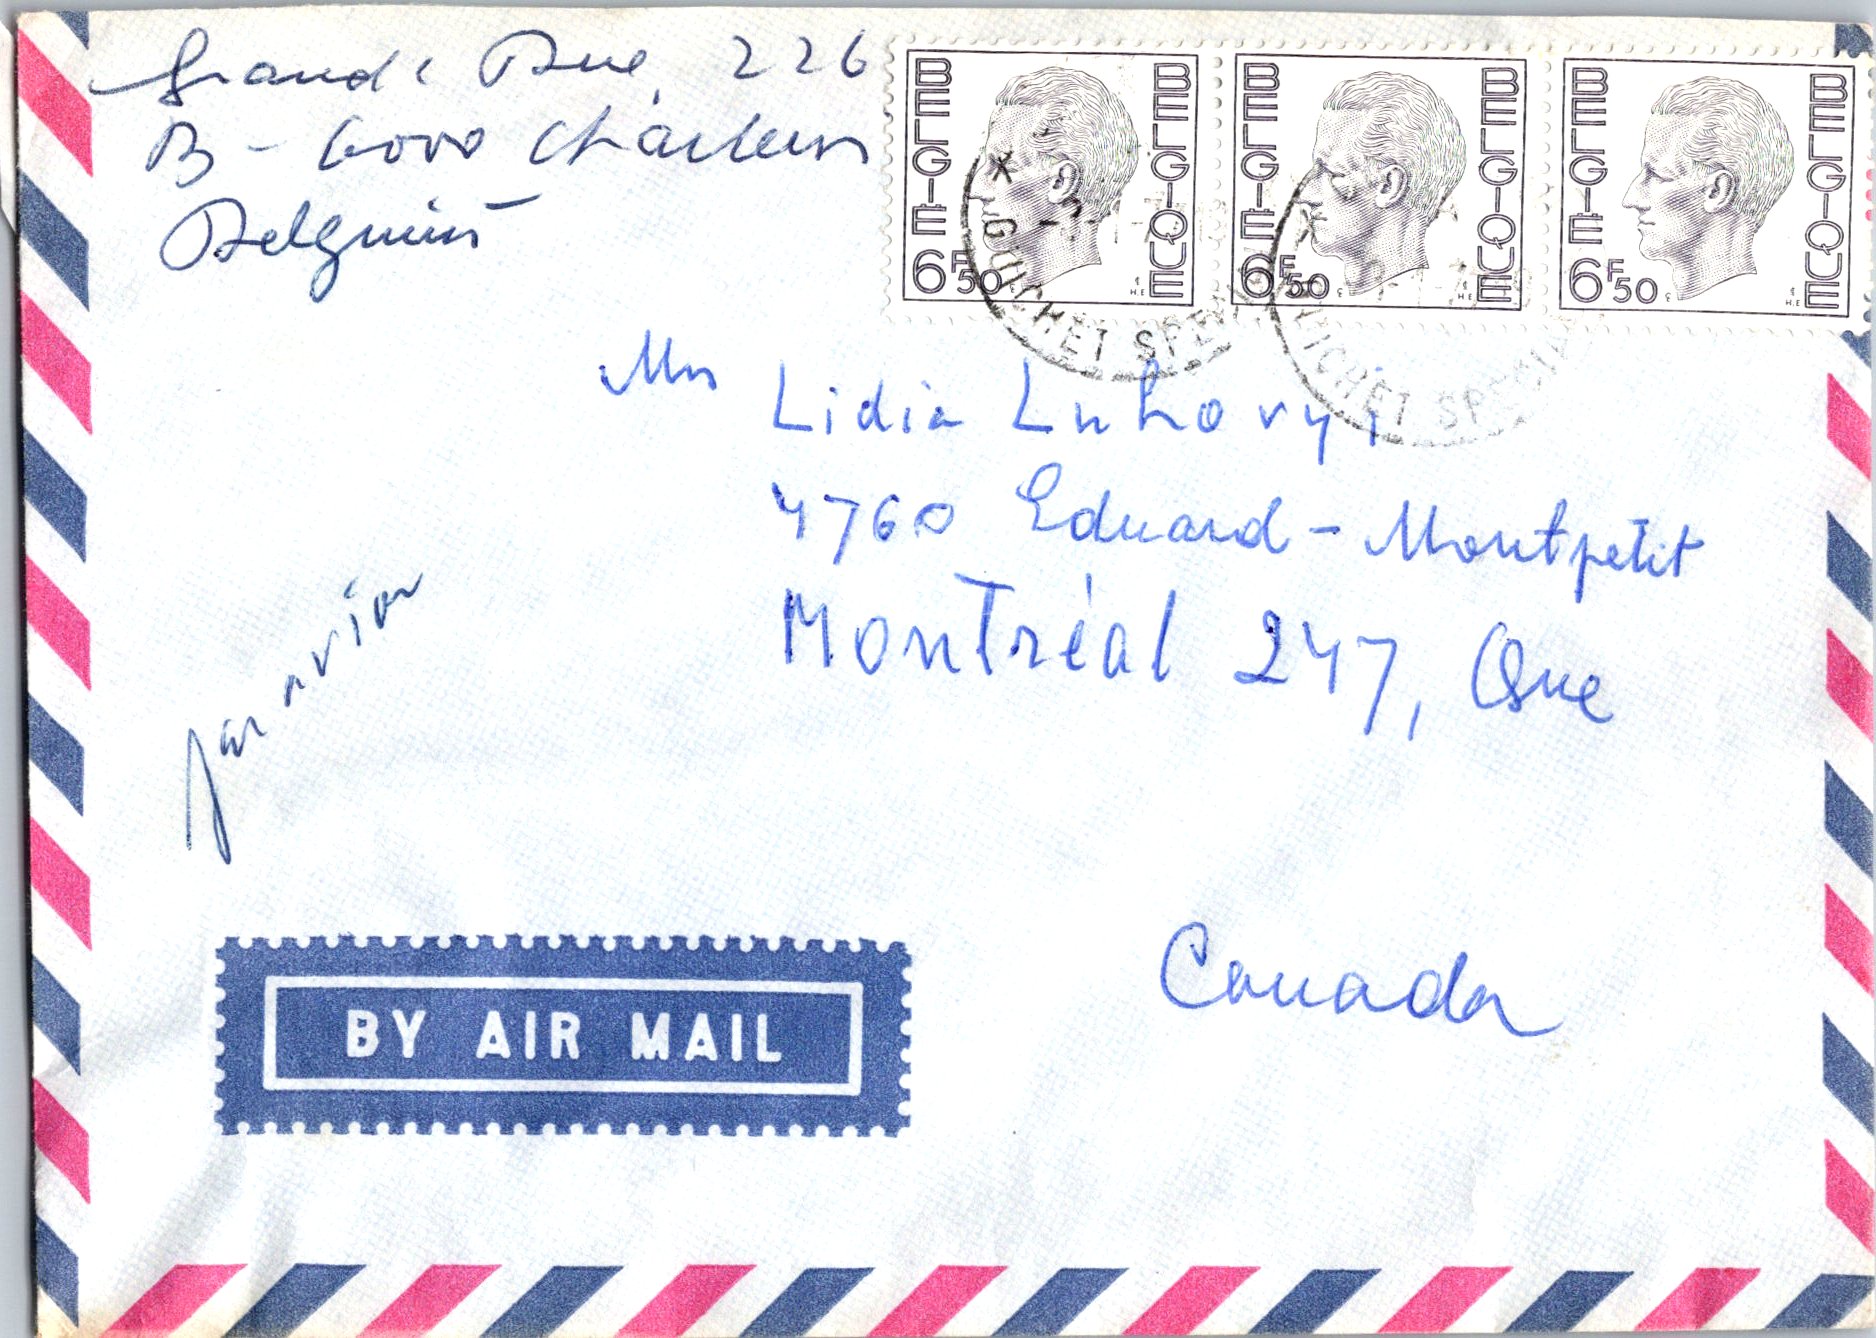 Grand'Rue, 226
B - 6000 Charleroi
Belgium
BELGIË BELGIQUE 6F50
BELGIË BELGIQUE 6F50
BELGIË BELGIQUE 6F50
GUICHET SPECI
GUICHET SPECI
Mrs Lidia Luhovyj
4760 Eduard-Montpetit
Montréal 247, Que
Canada
par avion
BY AIR MAIL